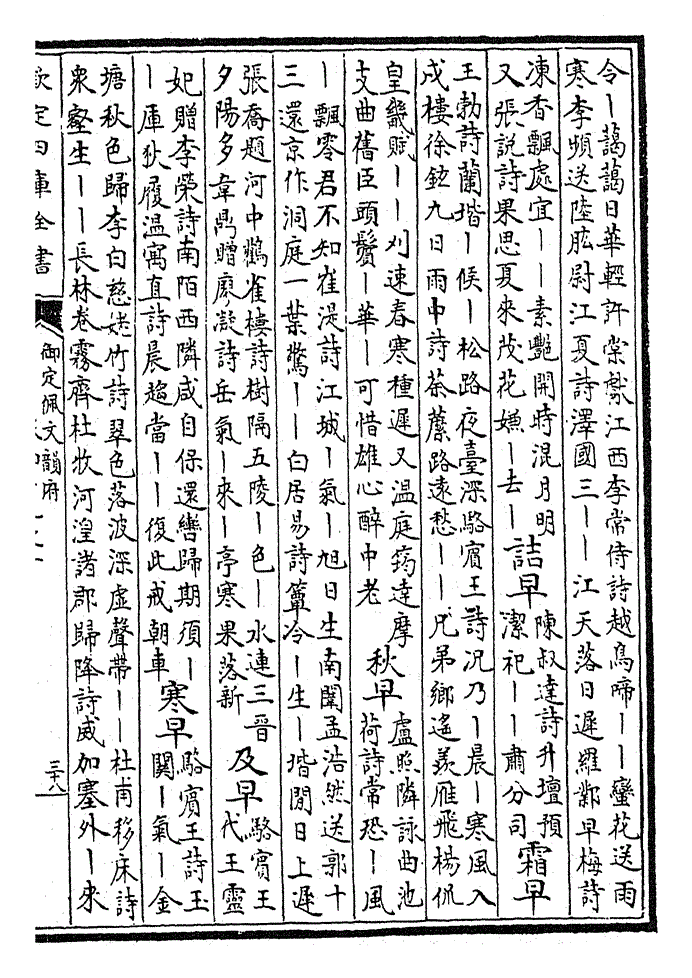 令丨藹藹日華輕許棠獻江西李常侍詩越鳥啼丨丨蠻花送雨
寒李頻送陸肱尉江夏詩澤國三丨丨江天落日遲羅鄴早梅詩
凍香飄處宜丨丨素艷開時混月明
又張說詩果思夏來茂花嫌丨去丨
詰早
陳叔達詩升壇預
潔祀丨丨肅分司
霜早
王勃詩蘭堦丨候丨松路夜臺深駱賓王詩況乃丨晨丨寒風入
戍樓徐鉉九日雨中詩茶蘪路遠愁丨丨兄弟鄉遙羨雁飛楊侃
皇畿賦丨丨刈速春寒種遲又温庭筠達摩
支曲舊臣頭鬢丨華丨可惜雄心醉中老
秋早
盧照隣詠曲池
荷詩常恐丨風
丨飄零君不知崔湜詩江城丨氣丨旭日生南闈孟浩然送郭十
三還京作洞庭一葉驚丨丨白居易詩簟冷丨生丨堦閒日上遲
張喬題河中鸛雀樓詩樹隔五陵丨色丨水連三晉
夕陽多韋鼎贈廖凝詩岳氣丨來丨亭寒果落新
及早
駱賓王
代王靈
妃贈李榮詩南陌西隣咸自保還轡歸期須丨
丨庫狄履温寓直詩晨趨當丨丨復此戒朝車
寒早
駱賓王詩玉
關丨氣丨金
塘秋色歸李白慈姥竹詩翠色落波深虛聲帶丨丨杜甫移床詩
衆壑生丨丨長林卷霧齊杜牧河湟諸郡歸降詩威加塞外丨來
欽定四庫全書
御定佩文韻府
三十八